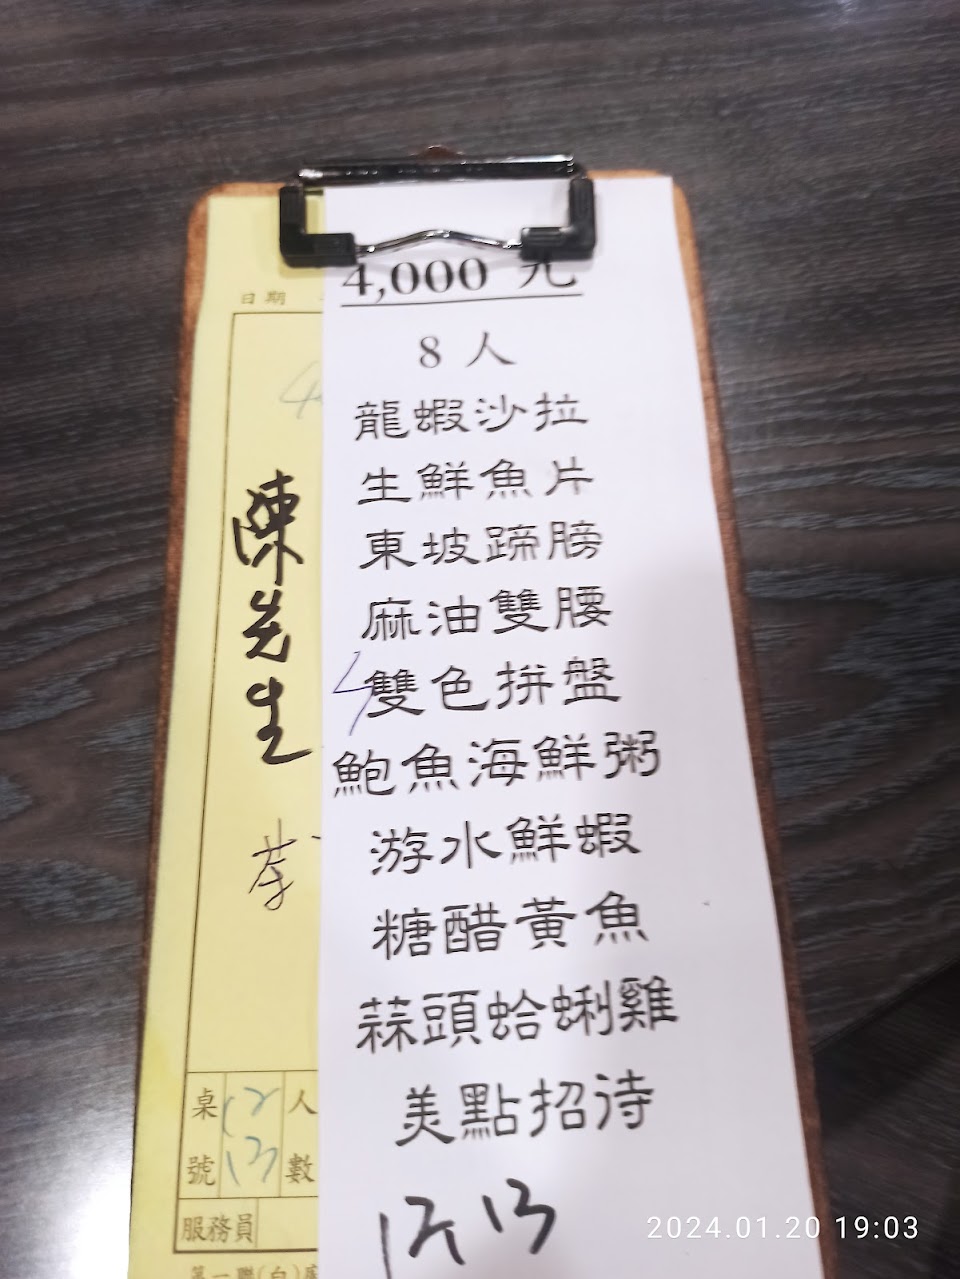 4,000 元
8 人
龍蝦沙拉
生鮮魚片
東坡蹄膀
麻油雙腰
雙色拼盤
鮑魚海鮮粥
游水鮮蝦
糖醋黃魚
蒜頭蛤蜊雞
美點招待
12 13
日期
陳先生
桌號
12
13
人數
服務員
第一聯(白)
2024.01.20 19:03